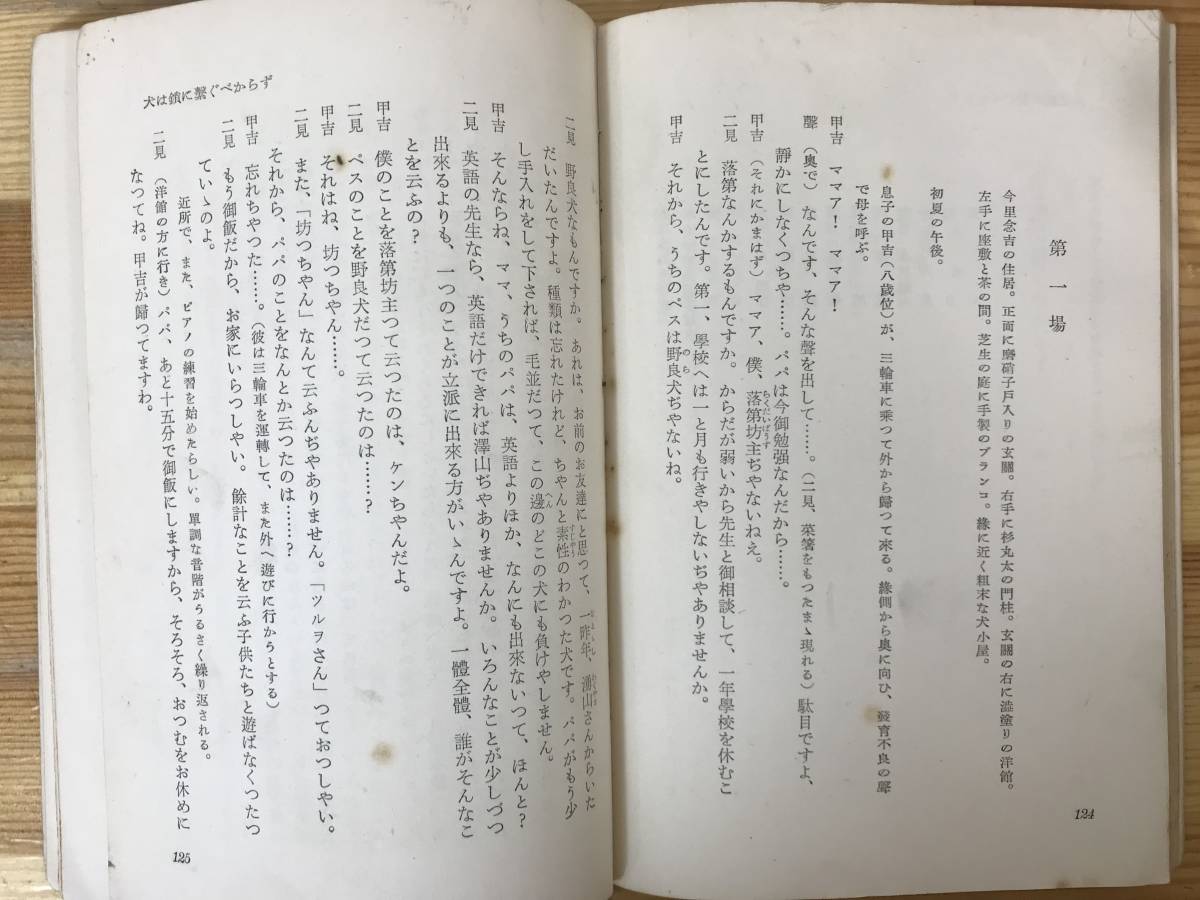 第一場
今里念吉の住居。正面に磨硝子戸入りの玄關。右手に杉丸太の門柱。玄關の右に澁塗りの洋館。
左手に座敷と茶の間。芝生の庭に手製のブランコ。緣に近く粗末な犬小屋。
初夏の午後。
息子の甲吉（八歲位）が、三輪車に乘つて外から歸つて來る。緣側から奧に向ひ、發育不良の聲
で母を呼ぶ。
甲吉 ママア！ ママア！
聲（奧で） なんです、そんな聲を出して……。（二見、菜箸をもつたまゝ現れる）駄目ですよ、
靜かにしなくつちや……。パパは今御勉强なんだから……。
甲吉（それにかまはず） ママア、僕、落第坊主ぢやないねえ。
二見 落第なんかするもんですか。からだが弱いから先生と御相談して、一年學校を休むこ
とにしたんです。第一、學校へは一と月も行きやしないぢやありませんか。
甲吉 それから、うちのペスは野良犬ぢやないね。
124
二見 野良犬なもんですか。あれは、お前のお友達にと思つて、一昨年、湧山さんからいた
だいたんですよ。種類は忘れたけれど、ちやんと素性のわかつた犬です。パパがもう少
し手入れをして下されば、毛並だつて、この邊のどこの犬にも負けやしません。
甲吉 そんならね、ママ、うちのパパは、英語よりほか、なんにも出來ないつて、ほんと？
二見 英語の先生なら、英語だけできれば澤山ぢやありませんか。いろんなことが少しづつ
出來るよりも、一つのことが立派に出來る方がいゝんですよ。一體全體、誰がそんなこ
とを云ふの？
甲吉 僕のことを落第坊主つて云つたのは、ケンちやんだよ。
二見 ペスのことを野良犬だつて云つたのは……？
甲吉 それはね、坊つちやん……。
二見 また、「坊つちやん」なんて云ふんぢやありません。「ツルヲさん」つておつしやい。
それから、パパのことをなんとか云つたのは……？
甲吉 忘れちやつた……。（彼は三輪車を運轉して、また外へ遊びに行かうとする）
二見 もう御飯だから、お家にいらつしやい。餘計なことを云ふ子供たちと遊ばなくたつ
ていゝのよ。
近所で、また、ピアノの練習を始めたらしい。單調な音階がうるさく繰り返される。
二見（洋館の方に行き） パパ、あと十五分で御飯にしますから、そろそろ、おつむをお休めに
なつてね。甲吉が歸つてますわ。
犬は鎖に繫ぐべからず
125